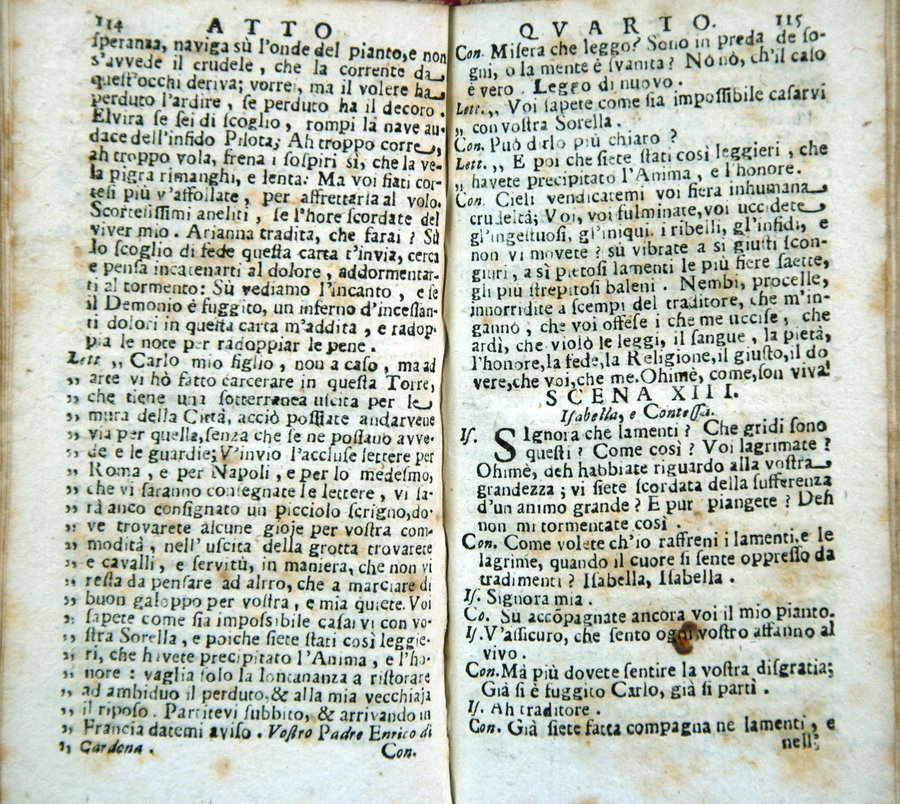 114 ATTO
ſperanza, naviga sù l'onde del pianto,e non
s'avvede il crudele, che la corrente da
queſt'occhi deriva; vorrei, ma il volere ha
perduto l'ardire, ſe perduto ha il decoro.
Elvira ſe ſei di ſcoglio, rompi la nave au-
dace dell'infido Pilota; Ah troppo corre,
ah troppo vola, frena i ſoſpiri sì, che la ve-
la pigra rimanghi, e lenta. Ma voi fiati cor-
teſi più v'affollate, per affrettaria al volo.
Scorteſiſſimi aneliti, ſe l'hore ſcordate del
viver mio. Arianna tradita, che farai? Sù
lo ſcoglio di fede queſta carta t'invia, cerca
e penſa incatenarti al dolore, addormentar-
ti al tormento: Sù vediamo l'incanto, e ſe
il Demonio è fuggito, un inferno d'inceſſan-
ti dolori in queſta carta m'addita, e radop-
pia le note per radoppiar le pene.
Lett. „ Carlo mio figlio, non a caſo, ma ad
„ arte vi hò fatto carcerare in queſta Torre,
„ che tiene una ſotterranea uſcita per le
„ mura della Città, acciò poſſiate andarvene
„ via per quella,ſenza che ſe ne poſſano avve-
„ de e le guardie; V'invio l'accluſe lettere per
„ Roma, e per Napoli, e per lo medeſmo,
„ che vi ſaranno conſegnate le lettere, vi ſa-
„ rà anco conſignato un picciolo ſcrigno,do-
„ ve trovarete alcune gioje per voſtra com-
„ modità, nell'uſcita della grotta trovarete
„ e cavalli, e ſervitù, in maniera, che non vi
„ reſta da penſare ad altro, che a marciare di
„ buon galoppo per voſtra, e mia quiete. Voi
„ ſapete come ſia impoſſibile caſarvi con vo-
„ ſtra Sorella, e poiche ſiete ſtati così leggie-
„ ri, che havete precipitato l'Anima, e l'ho-
„ nore: vaglia ſolo la lontananza a riſtorare
„ ad ambiduo il perduto,& alla mia vecchiaja
„ il ripoſo. Partitevi ſubbito, & arrivando in
„ Francia datemi aviſo. Voſtro Padre Enrico di
„ Cardona. Con.
QVARTO. 115
Con. Miſera che leggo? Sono in preda de ſo-
gni, o la mente è ſvanita? Nò nò, ch'il caſo
è vero. Leggo di nuovo.
Lett. „ Voi ſapete come ſia impoſſibile caſarvi
„ con voſtra Sorella.
Con. Può dirlo più chiaro?
Lett. „ E poi che ſiete ſtati così leggieri, che
„ havete precipitato l'Anima, e l'honore.
Con. Cieli vendicatemi voi fiera inhumana
crudeltà; Voi, voi fulminate, voi uccidete
gl'inceſtuoſi, gl'iniqui, i ribelli, gl'infidi, e
non vi movete? sù vibrate a sì giuſti ſcon-
giuri, a sì pietoſi lamenti le più fiere ſaette,
gli più ſtrepitoſi baleni. Nembi, procelle,
innorridite a ſcempi del traditore, che m'in-
gannò, che voi offeſe i che me ucciſe, che
ardì, che violò le leggi, il ſangue, la pietà,
l'honore,la fede,la Religione,il giuſto,il do
vere,che voi,che me. Ohimè, come,ſon viva!
SCENA XIII.
Iſabella, e Conteſſa.
Iſ. SIgnora che lamenti? Che gridi ſono
queſti? Come così? Voi lagrimate?
Ohimè, deh habbiate riguardo alla voſtra
grandezza; vi ſiete ſcordata della ſufferenza
d'un animo grande? E pur piangete? Deh
non mi tormentate così.
Con. Come volete ch'io raffreni i lamenti,e le
lagrime, quando il cuore ſi ſente oppreſſo da
tradimenti? Iſabella, Iſabella.
Iſ. Signora mia.
Co. Sù accõpagnate ancora voi il mio pianto.
Iſ. V'aſſicuro, che ſento ogni voſtro affanno al
vivo.
Con. Mà più dovete ſentire la voſtra diſgratia;
Già ſi è fuggito Carlo, già ſi partì.
Iſ. Ah traditore.
Con. Già ſiete fatta compagna ne lamenti, e
nell'